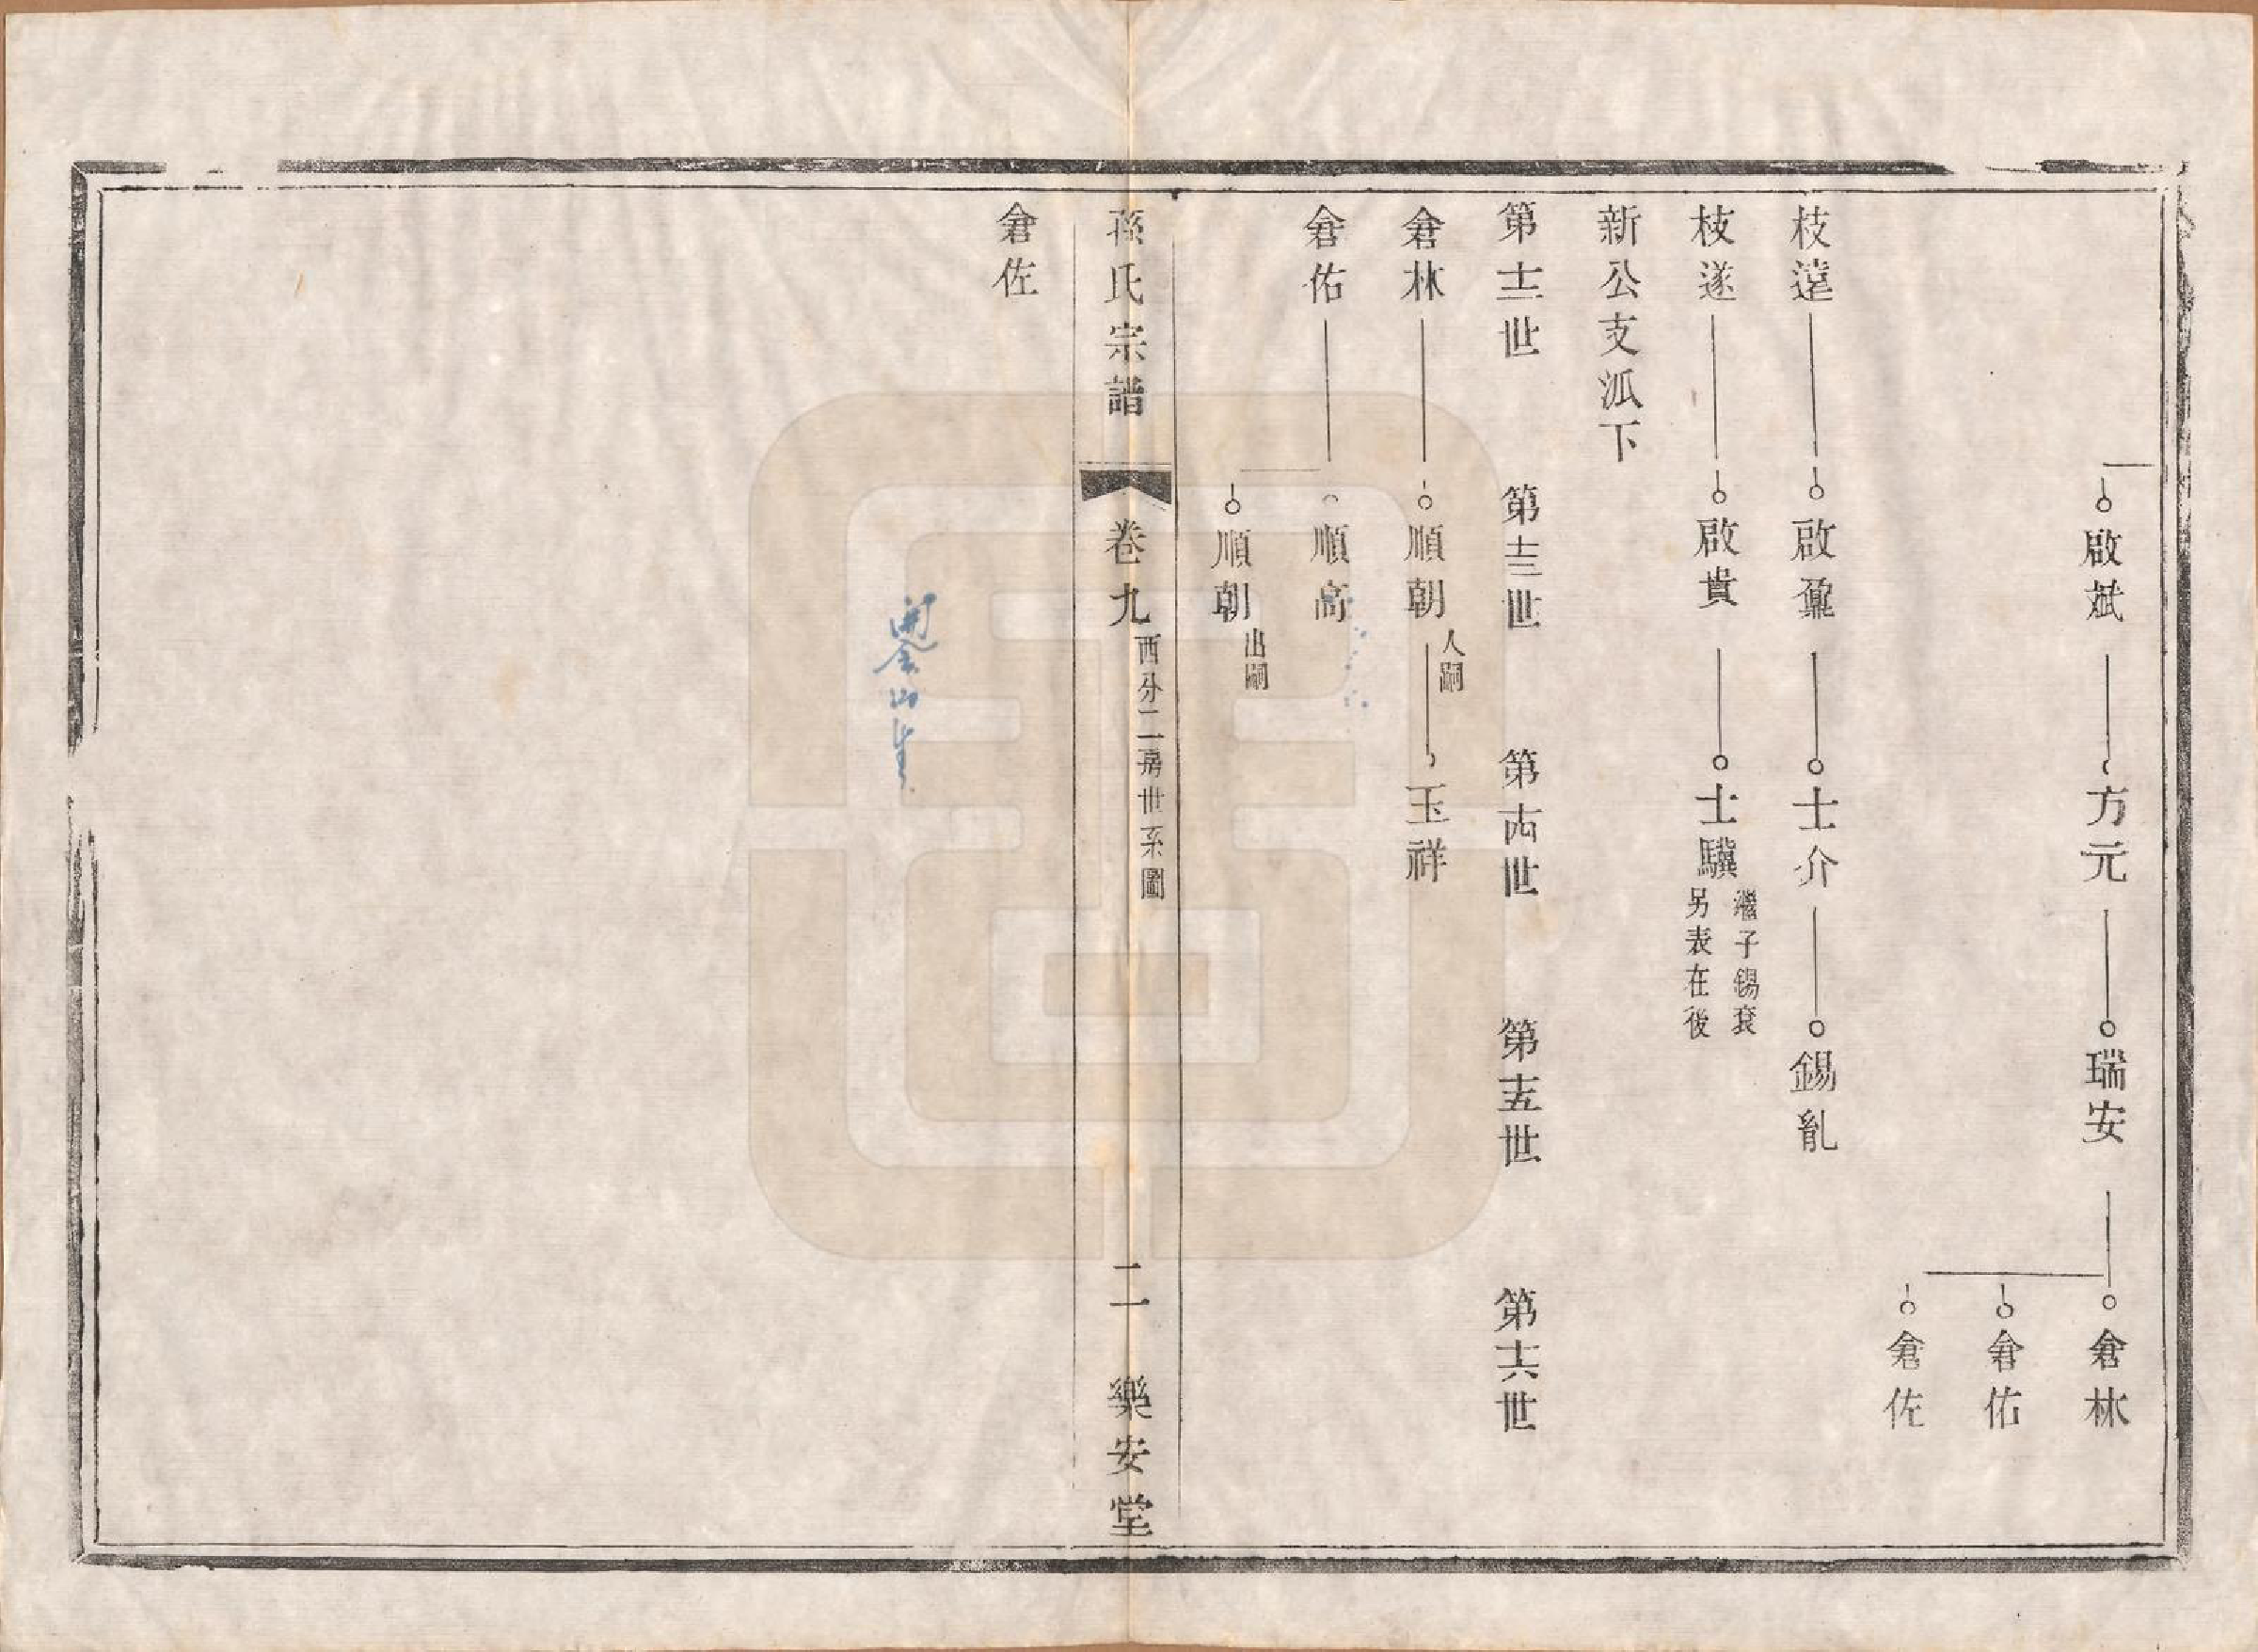 啟斌 方元 瑞安 倉林
倉佑
倉佐
枝遠 啟鼐 士介 錫胤
枝遂 啟貴 士驥 繼子錫袞
另表在後
新公支派下
第十二世 第十三世 第十四世 第十五世 第十六世
倉林 順朝 入嗣 玉祥
倉佑 順高
順朝 出嗣
孫氏宗譜 卷九 西分二房世系圖 二 樂安堂
倉佐